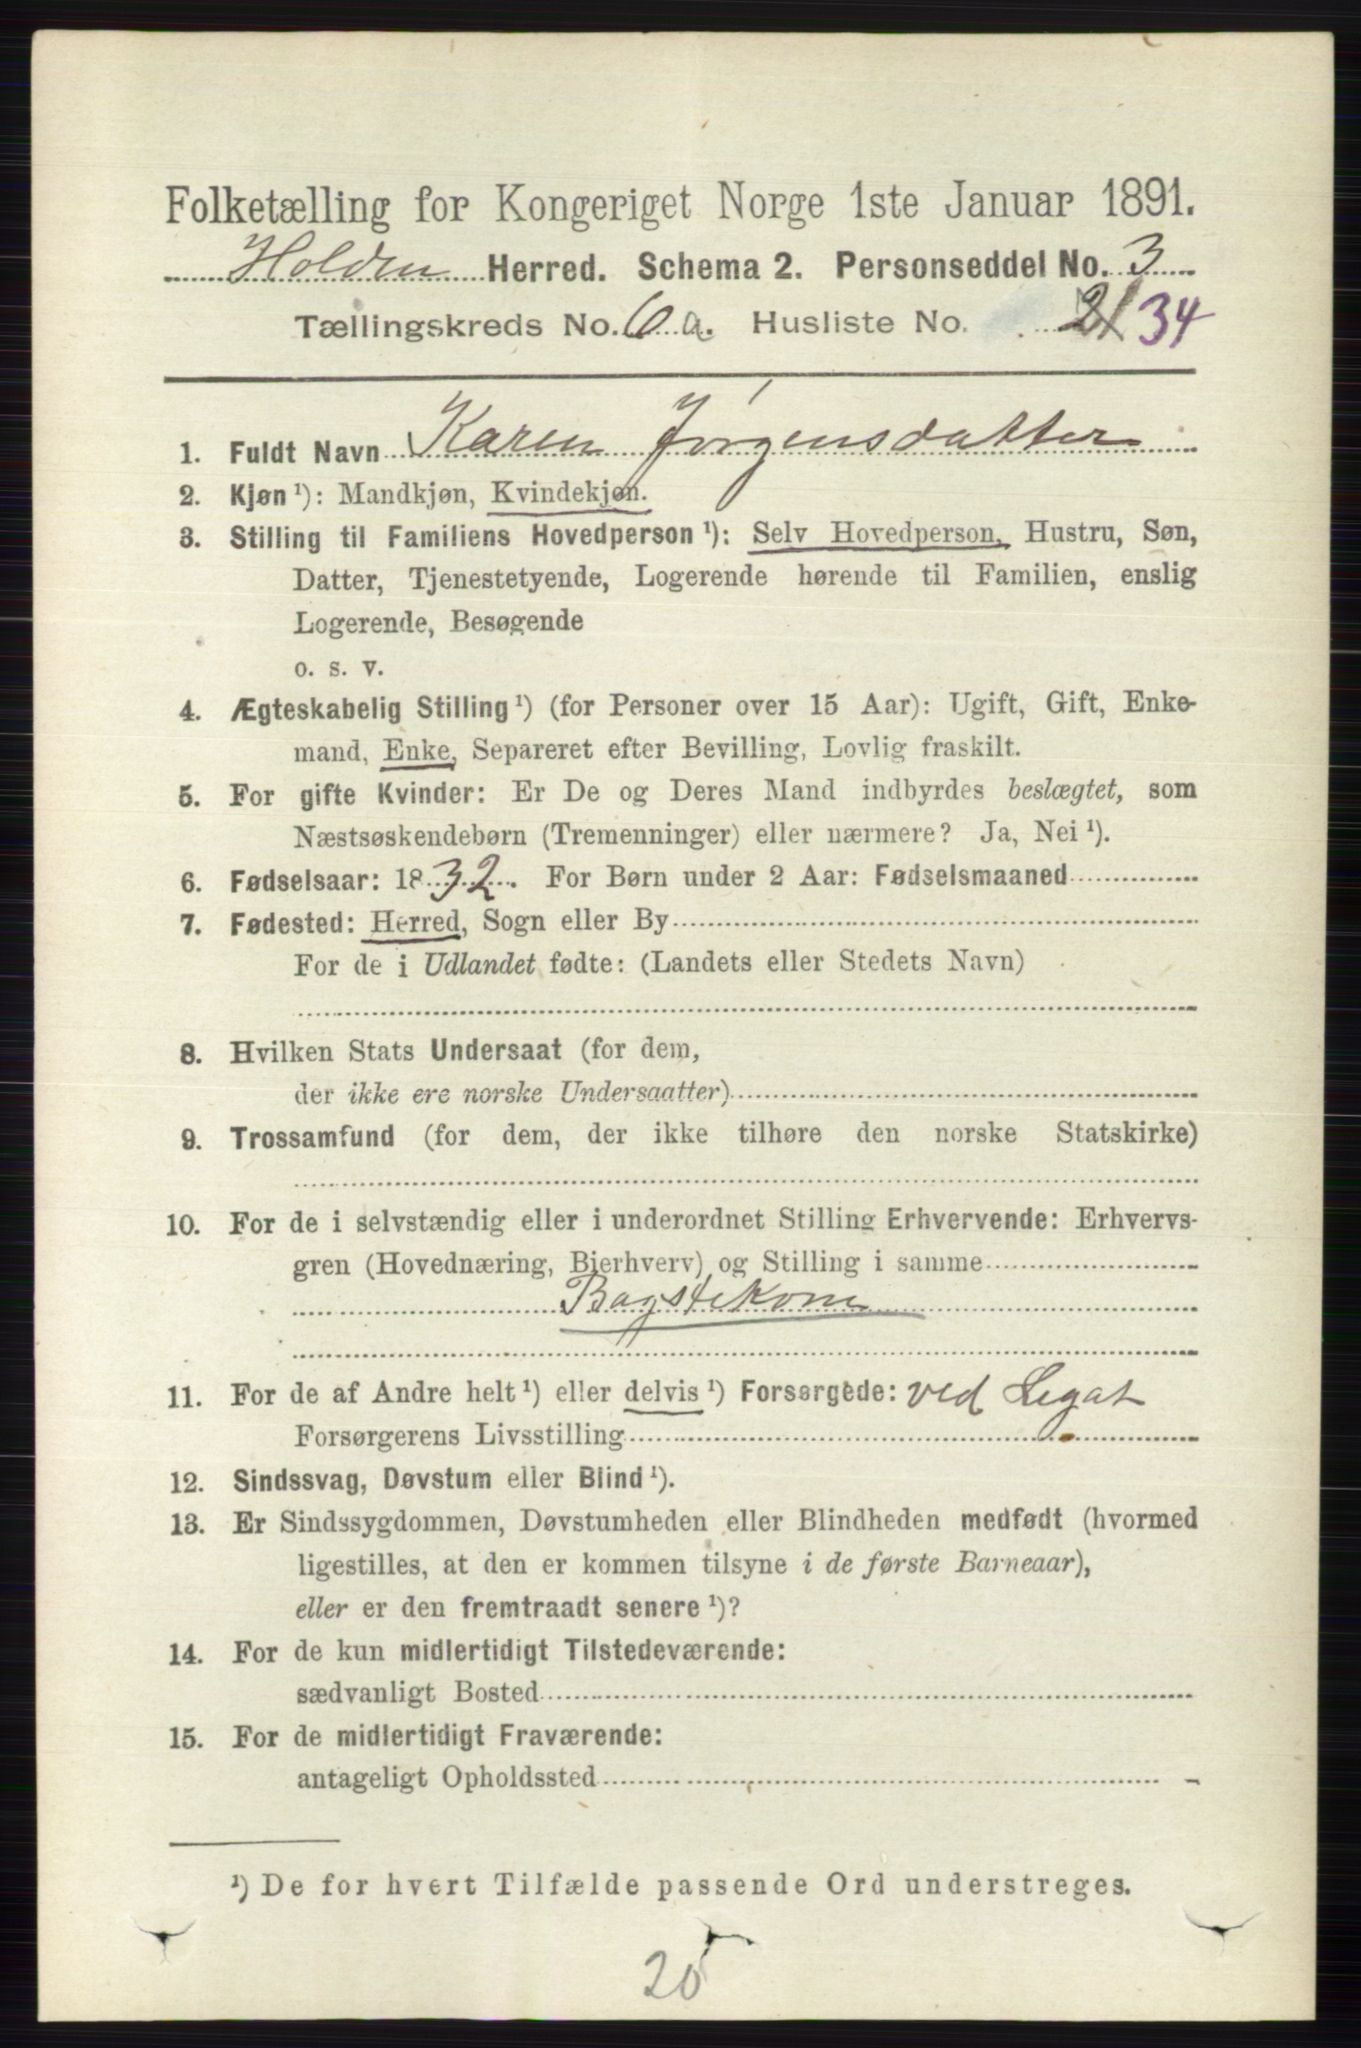 Folketælling for Kongeriget Norge 1ste Januar 1891.
Holden Herred. Schema 2. Personseddel No. 3
Tællingskreds No. 6 a. Husliste No. 21 34
1. Fuldt Navn Karen Jørgensdatter
2. Kjøn ¹): Mandkjøn, Kvindekjøn.
3. Stilling til Familiens Hovedperson ¹): Selv Hovedperson, Hustru, Søn,
Datter, Tjenestetyende, Logerende hørende til Familien, enslig
Logerende, Besøgende
o. s. v.
4. Ægteskabelig Stilling ¹) (for Personer over 15 Aar): Ugift, Gift, Enke-
mand, Enke, Separeret efter Bevilling, Lovlig fraskilt.
5. For gifte Kvinder: Er De og Deres Mand indbyrdes beslægtet, som
Næstsøskendebørn (Tremenninger) eller nærmere? Ja, Nei ¹).
6. Fødselsaar: 1832. For Børn under 2 Aar: Fødselsmaaned
7. Fødested: Herred, Sogn eller By
For de i Udlandet fødte: (Landets eller Stedets Navn)
8. Hvilken Stats Undersaat (for dem,
der ikke ere norske Undersaatter)
9. Trossamfund (for dem, der ikke tilhøre den norske Statskirke)
10. For de i selvstændig eller i underordnet Stilling Erhvervende: Erhvervs-
gren (Hovednæring, Bierhverv) og Stilling i samme
Bagstekone
11. For de af Andre helt ¹) eller delvis ¹) Forsørgede: ved Legat
Forsørgerens Livsstilling
12. Sindssvag, Døvstum eller Blind ¹).
13. Er Sindssygdommen, Døvstumheden eller Blindheden medfødt (hvormed
ligestilles, at den er kommen tilsyne i de første Barneaar),
eller er den fremtraadt senere ¹)?
14. For de kun midlertidigt Tilstedeværende:
sædvanligt Bosted
15. For de midlertidigt Fraværende:
antageligt Opholdssted
¹) De for hvert Tilfælde passende Ord understreges.
20